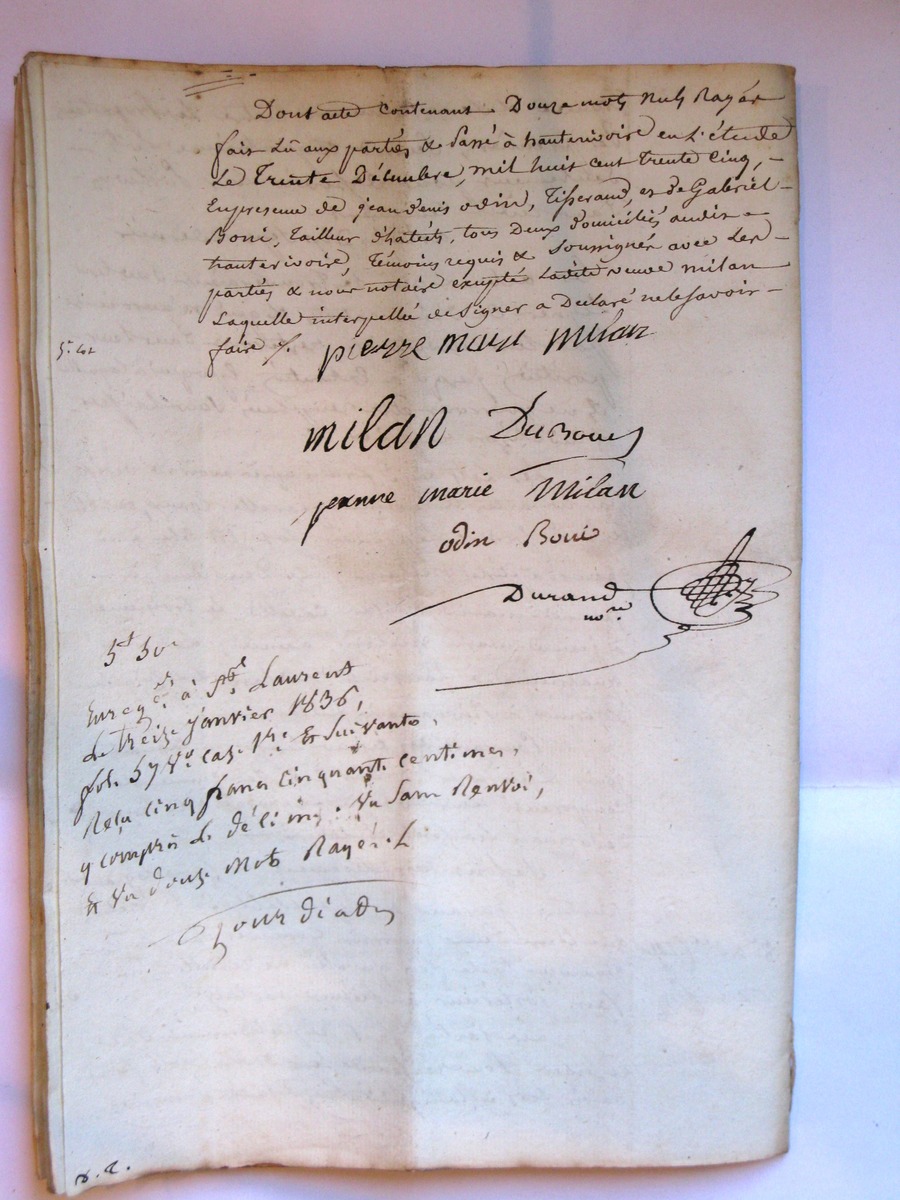 Dont acte contenant Douze mots Nuls Rayés
fait Lû aux parties & Passé à hauterivoire en L'étude
Le Trente Décembre, mil huit cent trente Cinq, -
En presence de jean denis odin, Tisserand, et de Gabriël -
Boni, tailleur d'habits, tous Deux domiciliés audit -
hauterivoire, témoins requis & soussignés avec Les -
parties & nous notaire excepté Ladite veuve milan
Laquelle interpellée de signer a Declaré ne le savoir -
faire
pierre mari milan
milan DuBoues
jeanne marie Milan
odin Boni
Durand
nore
5f 50c
Enregé. à St. Laurent
Le treize janvier 1836,
fol. 57 vo. case 1re & suivantes,
Reçu cinq francs cinquante centimes,
y compris Le décime. Vu sans Renvoi,
& Vu douze Mots Rayés.